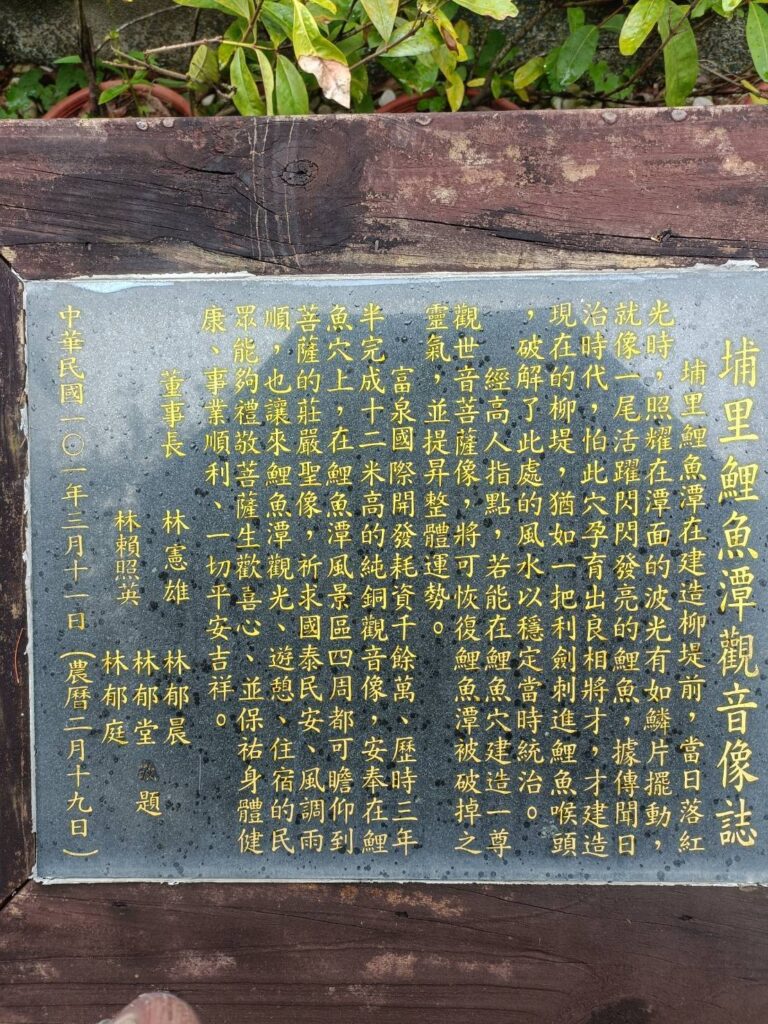 埔里鯉魚潭觀音像誌
埔里鯉魚潭在建造柳堤前，當日落紅
光時，照耀在潭面的波光有如鱗片擺動，
就像一尾活躍閃閃發亮的鯉魚，據傳聞日
治時代，怕此穴孕育出良相將才，才建造
現在的柳堤，猶如一把利劍刺進鯉魚喉頭
，破解了此處的風水以穩定當時統治。
經高人指點，若能在鯉魚穴建造一尊
觀世音菩薩像，將可恢復鯉魚潭被破掉之
靈氣，並提昇整體運勢。
富泉國際開發耗資千餘萬、歷時三年
半完成十二米高的純銅觀音像，安奉在鯉
魚穴上，在鯉魚潭風景區四周都可瞻仰到
菩薩的莊嚴聖像，祈求國泰民安、風調雨
順，也讓來鯉魚潭觀光、遊憩、住宿的民
眾能夠禮敬菩薩生歡喜心、並保祐身體健
康、事業順利、一切平安吉祥。
董事長 林憲雄 林郁晨
林郁堂 題
林賴照英
林郁庭
中華民國一〇一年三月十一日（農曆二月十九日）